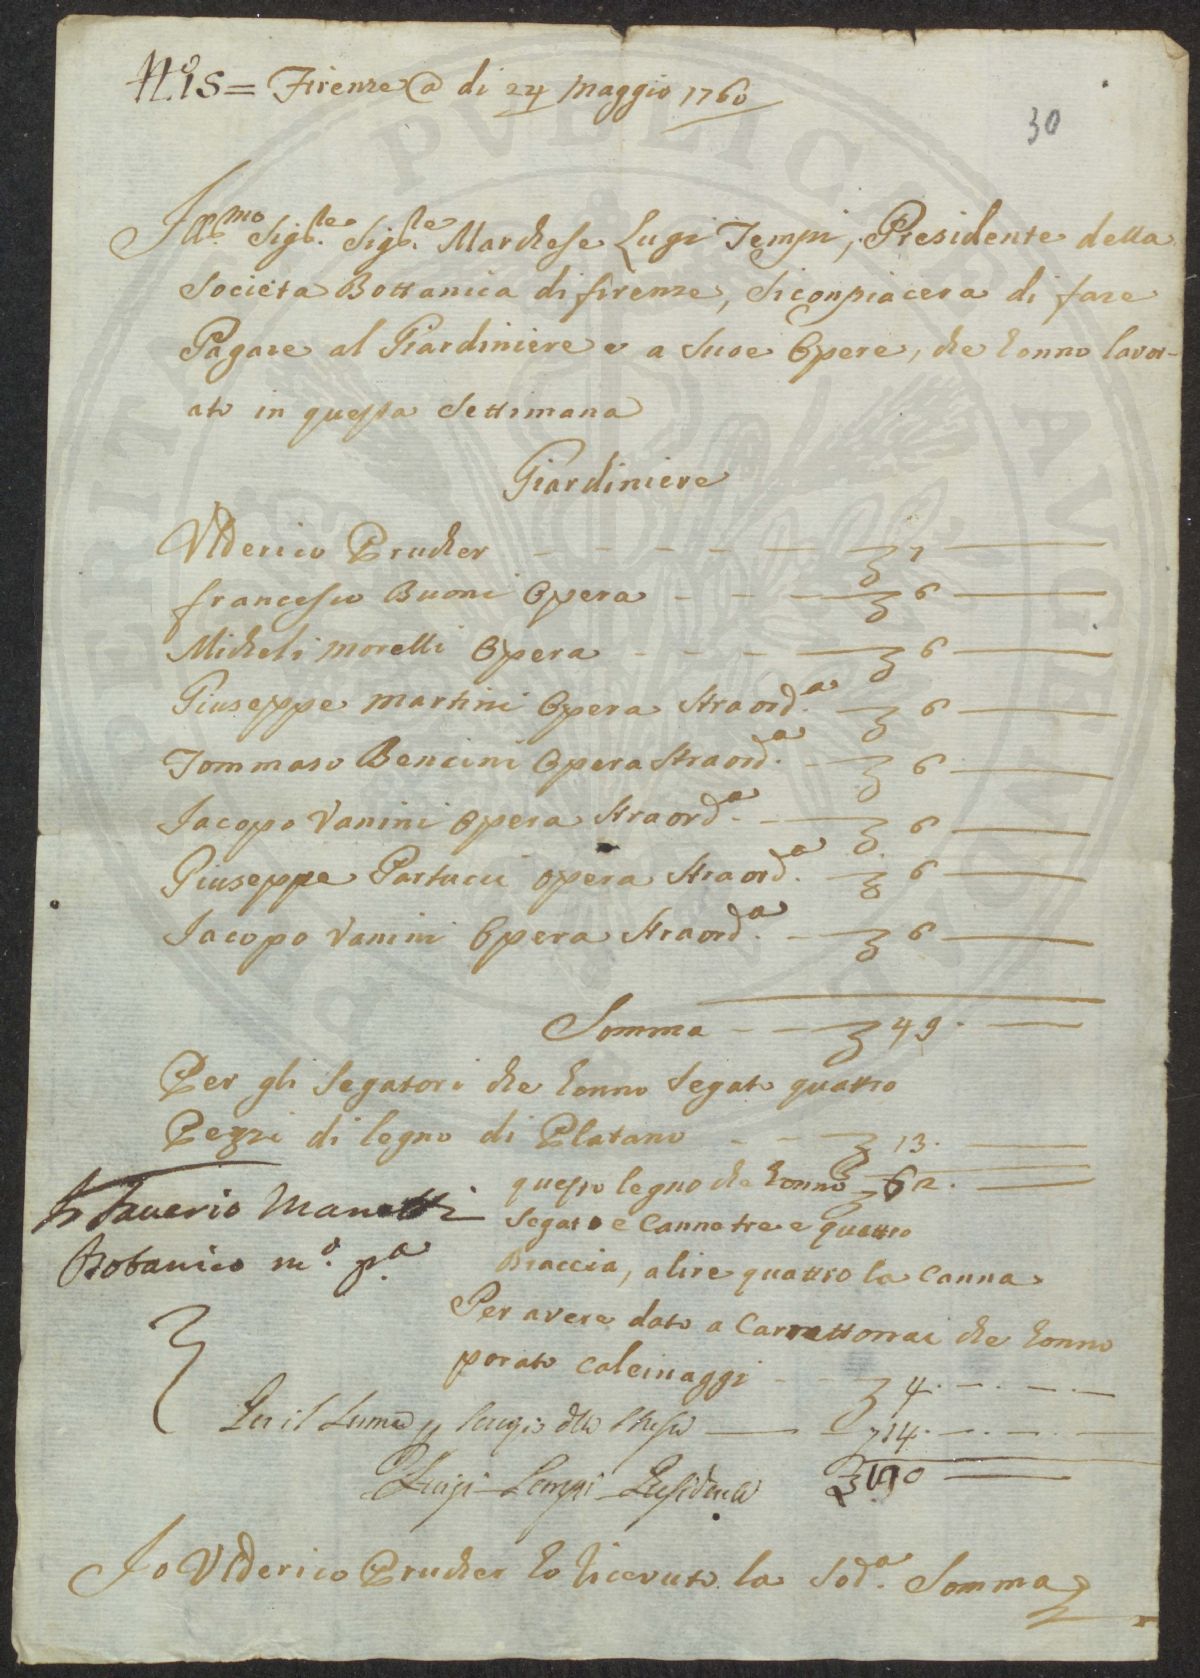 N.º 15 = Firenze @ di 24 Maggio 1760
30
Ill.mo Sig.re Sig.re Marchese Lugi Tempi, Presidente della
Societa Bottanica di firenze, Siconpiacera di fare
Pagare al Giardiniere e a Suoe Opere, che honno lavor-
ato in questa Settimana
Giardiniere
Vlderico Prucher - - - - - 7
francesco Buoni Opera - - - 6
Micheli Morelli Opera - - - 6
Giuseppe Martini Opera Straord.a - 6
Tommaso Bencini Opera Straord.a - 6
Iacopo Vanini Opera Straord.a - 6
Giuseppe Partucci opera Straord.a - 6
Iacopo Vanini Opera Straord.a - 6
Somma - - 49
Per gli Segatori che honno Segato quatro
Pezzi di legno di Platano - - 13.
questo legno che honno 62.
Segato e Canne tre e quatro
Braccia, a lire quattro la Canna
Saverio Manetti
Botanico m.º p.a
Per avere dato a Carrettonai che honno
porato Calcinaggi - - 4.
Per il
Luigi Tempi Presidente
Io Vlderico Prucher ho ricevuto la Sod.a Somma
PERITI PVBLICAE AVGET